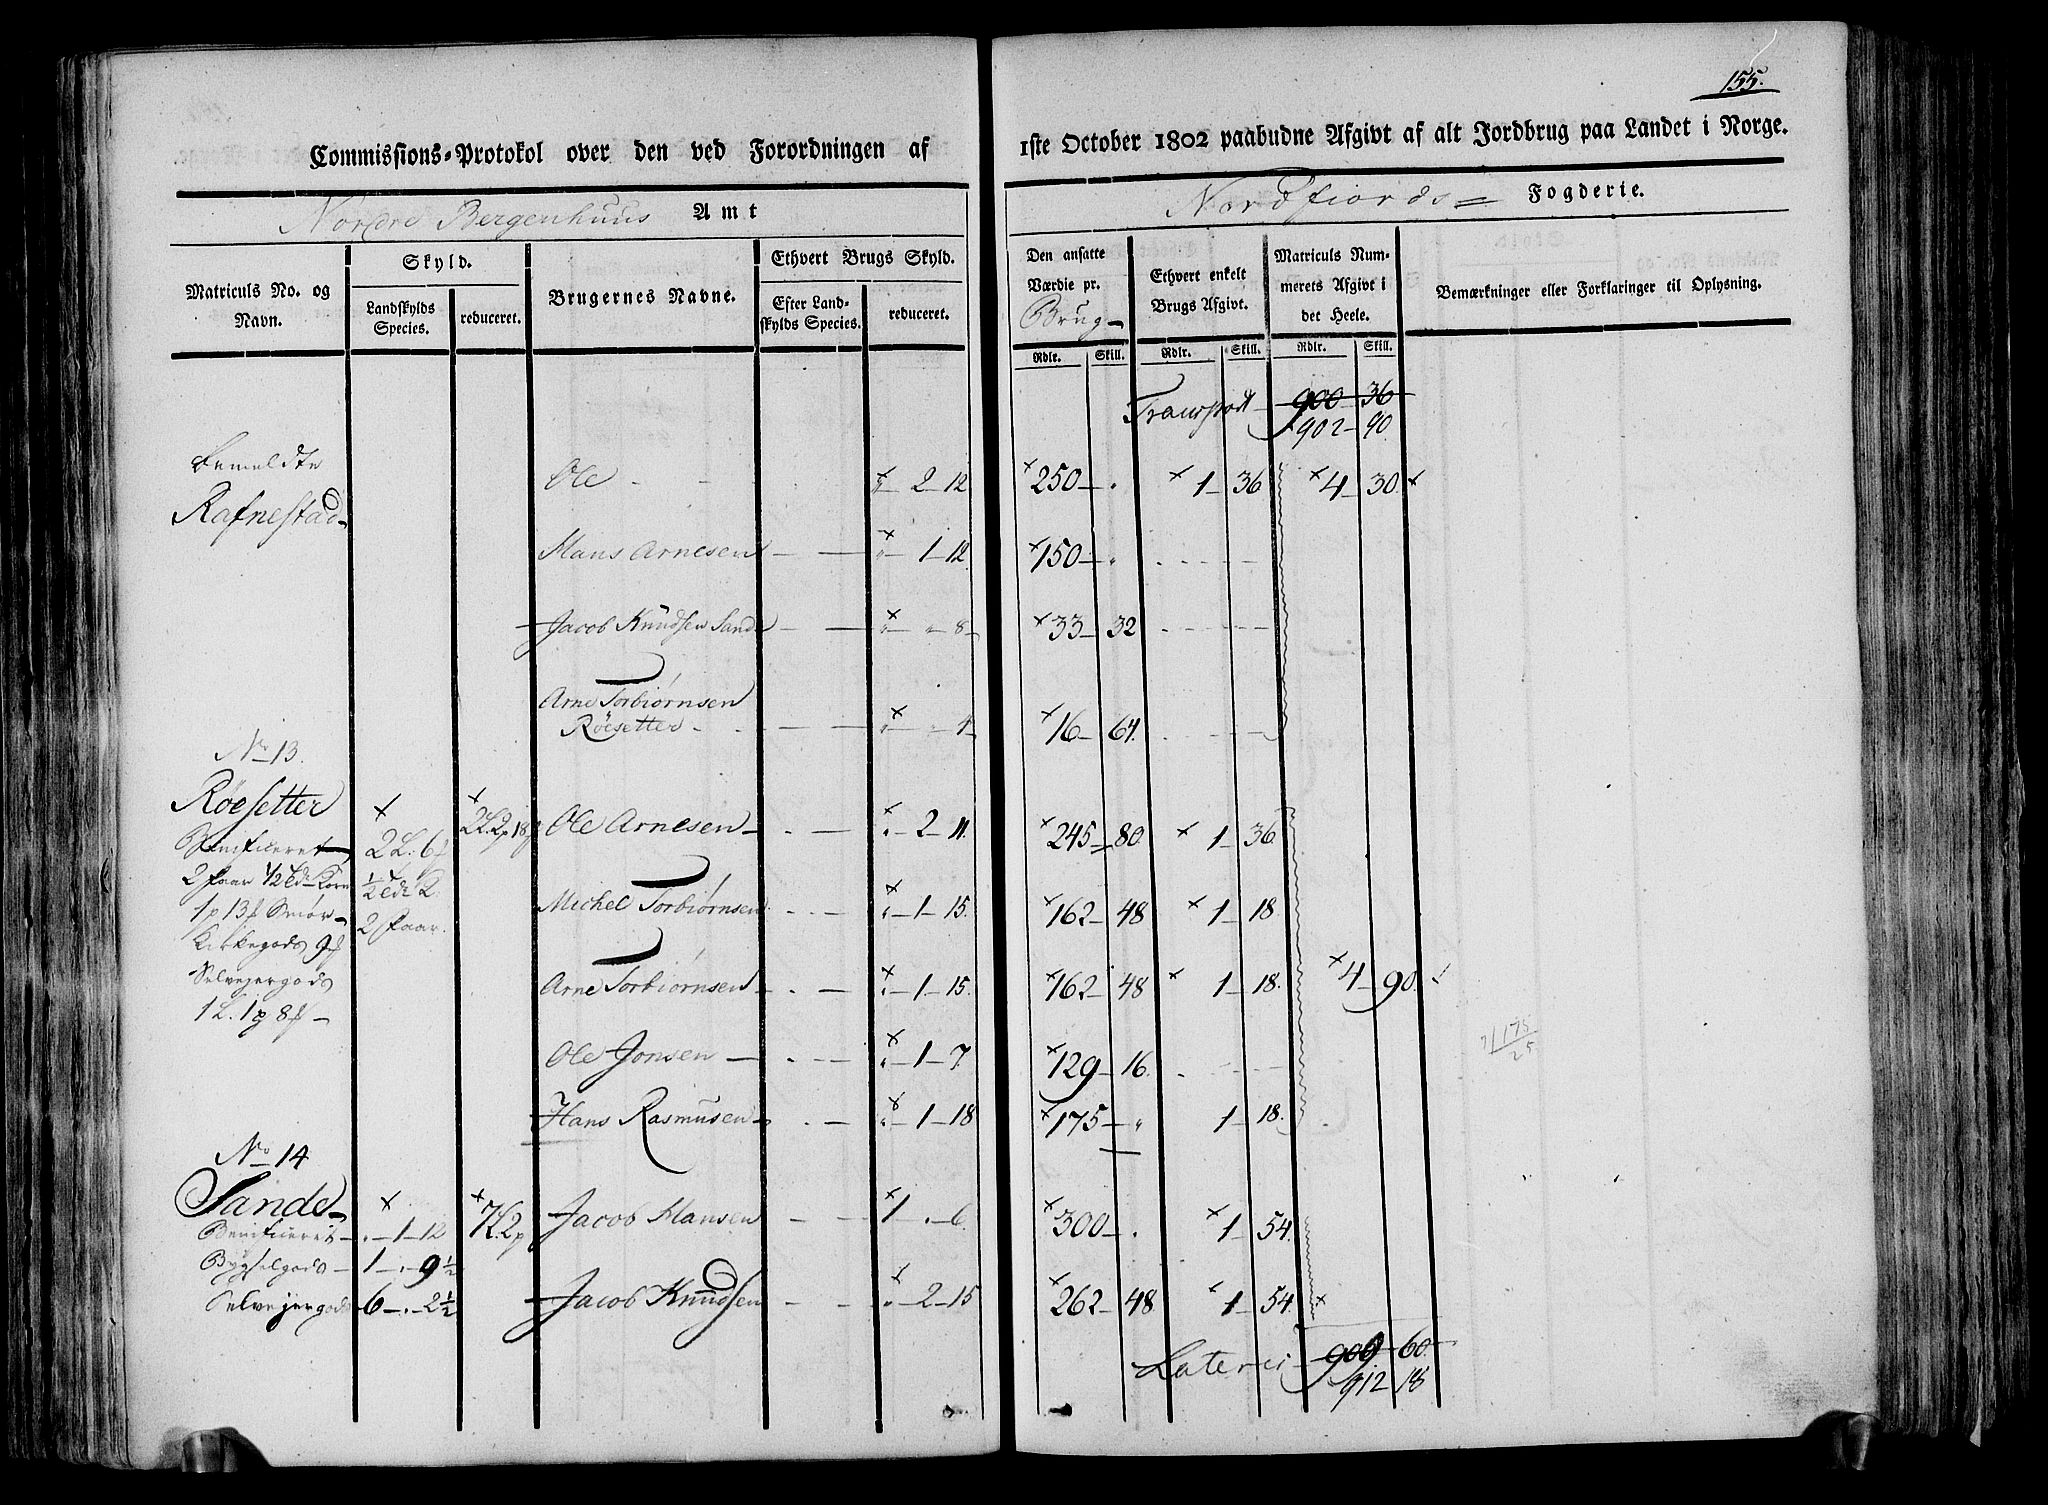 155.
Commissions-Protokol over den ved Forordningen af 1ste October 1802 paabudne Afgivt af alt Jordbrug paa Landet i Norge.
Nordre Bergenhuus Amt
Nordfiords Fogderie.
Matriculs No. og Navn.
Skyld.
Landskylds Species.
reduceret.
Brugernes Navne.
Ethvert Brugs Skyld.
Efter Landskylds Species.
reduceret.
Den ansatte Værdie pr. Brug
Rdlr. Skill.
Ethvert enkelt Brugs Afgivt.
Rdlr. Skill.
Matriculs Nummerets Afgivt i det Heele.
Rdlr. Skill.
Bemærkninger eller Forklaringer til Oplysning.
Transport 900 36
902 90
bemeldte Ole - - × „ 2 12 ×250 . ×1 36 ×4 30 ×
Rafnestad
Hans Arnesen — — × „ 1 12 ×150 „
Jacob Knudsen Sande — — × „ „ 8 ×33 32
Arne Torbiørnsen
Røesetter — — × „ „ 4 ×16 64.
No 13.
Røesetter × ×2L.2p18 Ole Arnesen × „ 2 11. ×245 80 ×1 36
Benificeret 2L. 6
2 faar 1/2 Korn 1/2 K. Michel Torbiørnsen × „ 1 15. ×162 48 ×1 18.
1p 13 Smør 2 faar.
Kirkegods 9
Selvejergods Arne Torbiørnsen × „ 1 15. ×162 48 ×1 18. ×4 90.
1L. 1p 8
Ole Jonsen × „ 1 7. ×129 16.
175
25
Hans Rasmusen × „ 1 18 ×175 „ 1 18.
No 14
Sande × ×7L.2p Jacob Hansen ×1 . 6. ×300 . ×1 54.
Benificeret . 1 12
Bygselgods 1 . 9½
Selvejergods 6 . 2½ Jacob Knudsen × „ 2 15 ×262 48 ×1 54. ×
Lateris 909 60.
912 18